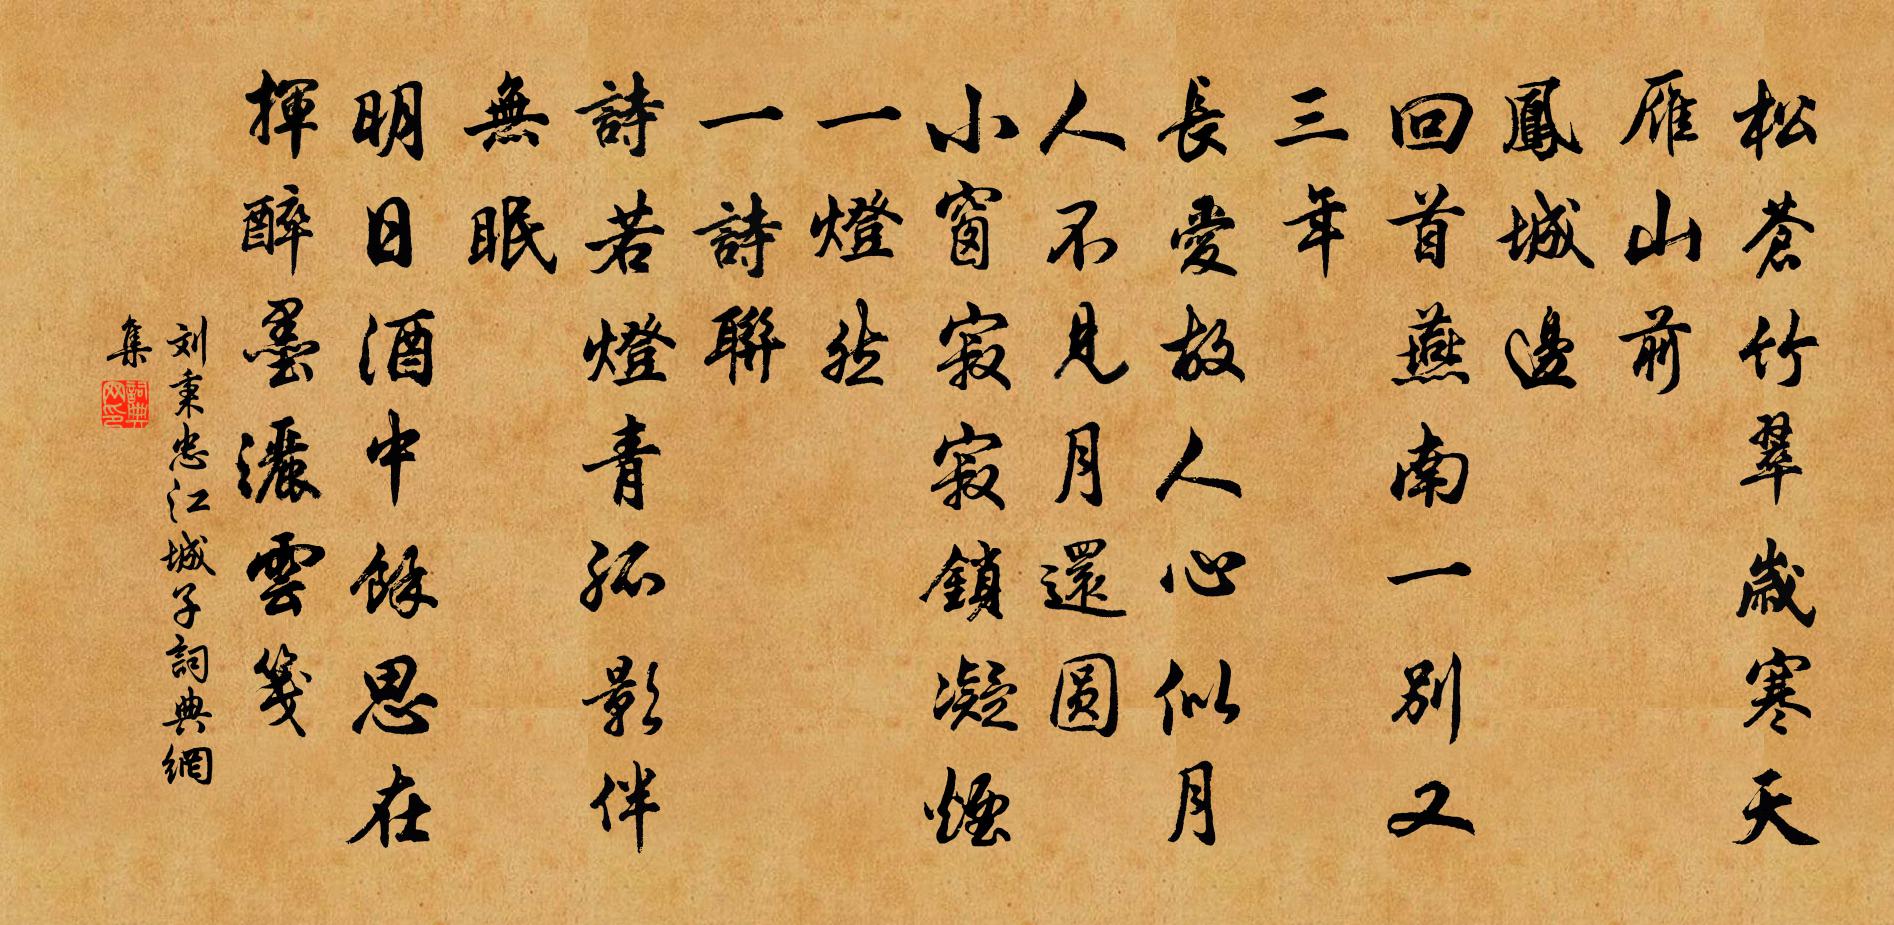 松蒼竹翠歲寒天
雁山前
鳳城邊
回首燕南一別又
三年
長愛故人心似月
人不見月還圓
小窗寂寂鎖凝煙
一燈然
一詩聯
詩若燈青孤影伴
無眠
明日酒中餘思在
揮醉墨灑雲箋
刘秉忠江城子詞典網
集
詞典網印